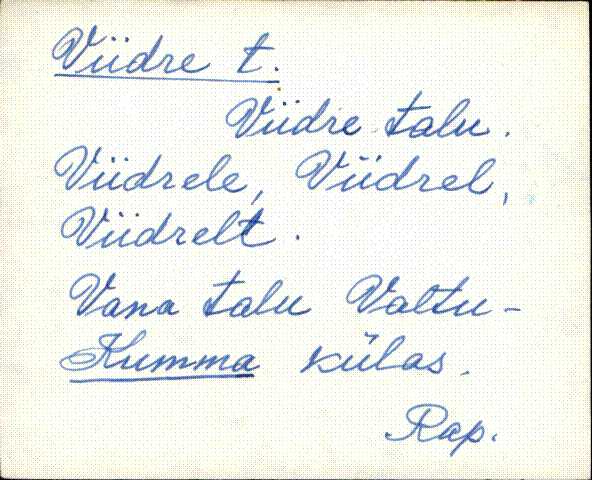 Viidre t.
Viidre talu.
Viidrele, Viidrel,
Viidrelt.
Vana talu Valtu-
Kumma külas.
Rap.